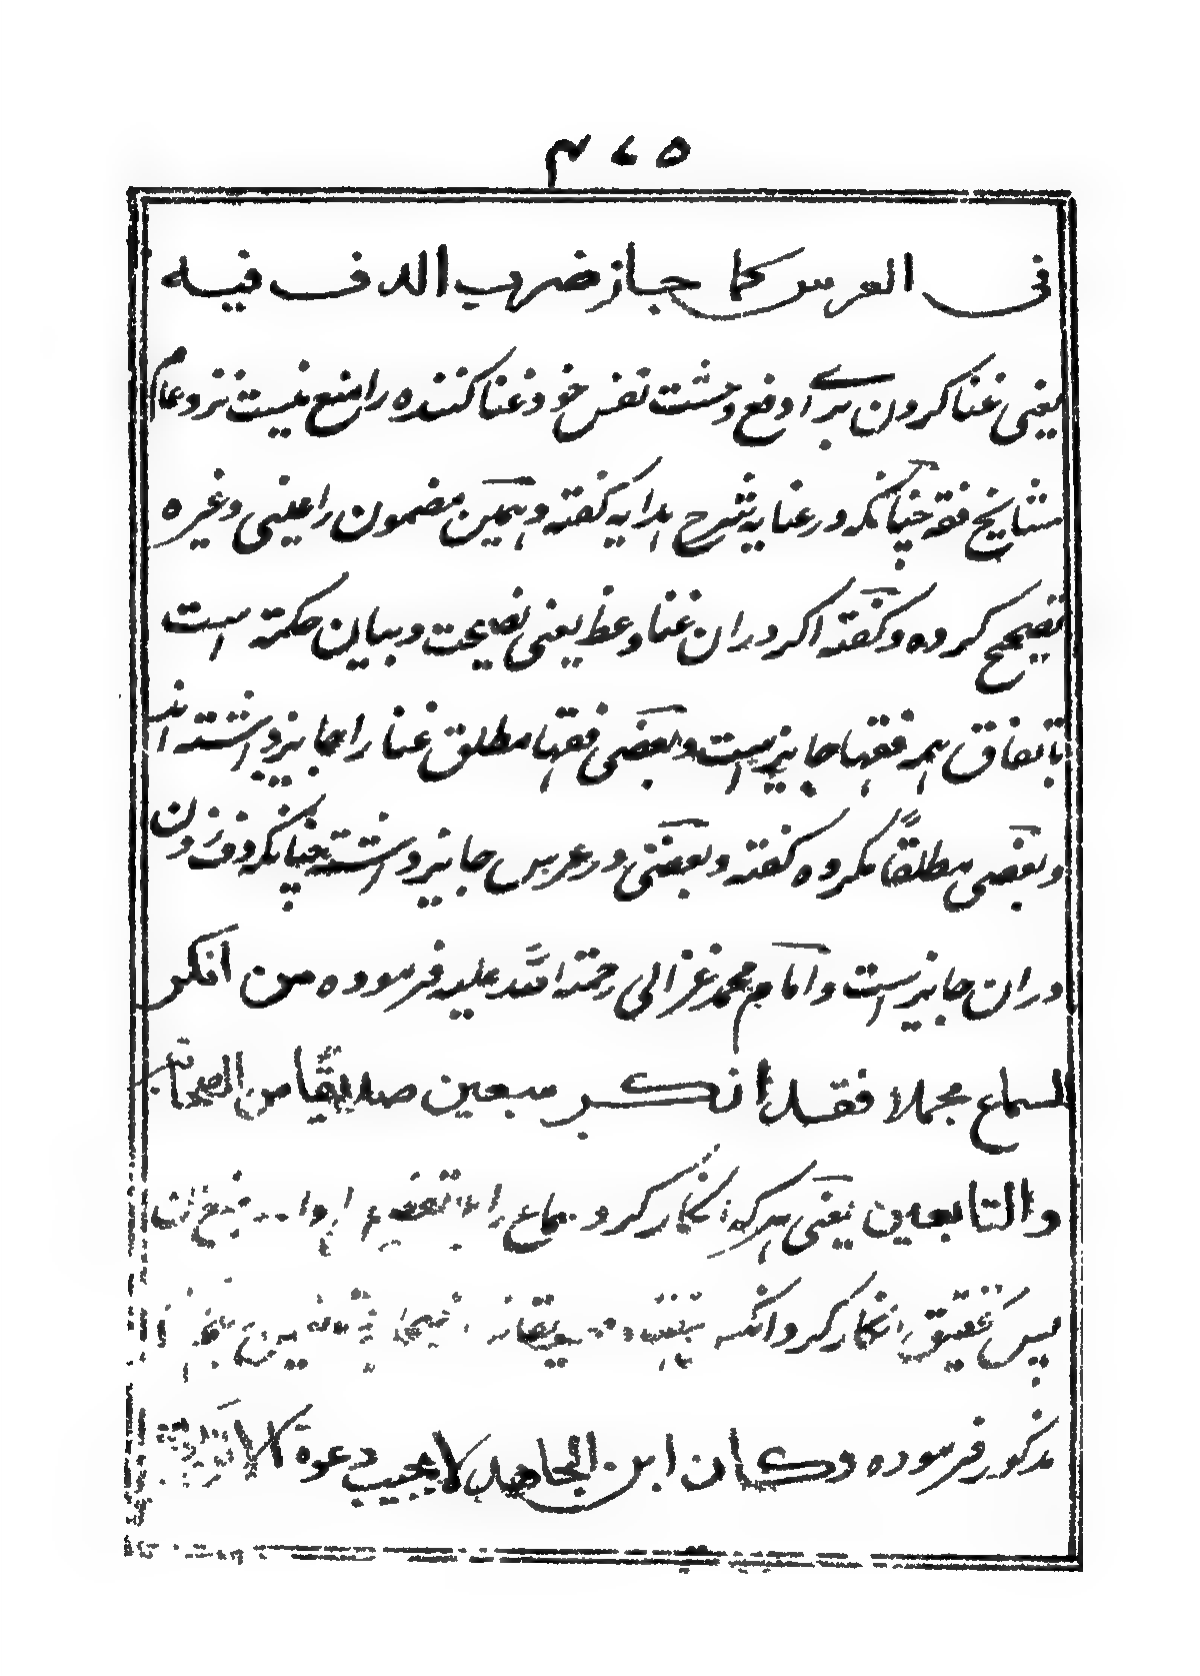 ۴۷۵
فی العرس کما جاز ضرب الدف فیه
یعنی غنا کردن برای دفع وحشت نفس خود غنا کننده را منع نیست نزد عام
مشایخ فقه چنانکه در عنایه شرح هدایه گفته و همین مضمون را عینی و غیره
تصحیح کرده و گفته اگر دران غنا وعظ یعنی نصیحت و بیان حکمة است
باتفاق همه فقها جایز است و بعضی فقها مطلق غنا را جایز داشته اند
و بعضی مطلقًا مکروه گفته و بعضی در عرس جایز داشته چنانکه دف زدن
دران جایز است و امام محمد غزالی رحمة الله علیه فرموده من انکر
السماع مجملا فقد انکر سبعین صدیقًا من الصحابة
والتابعین یعنی هرکه انکار کرد سماع را
پس تحقیق انکار کرد
مذکور فرموده وکان ابن المجاهد لا یجیب دعوة الا